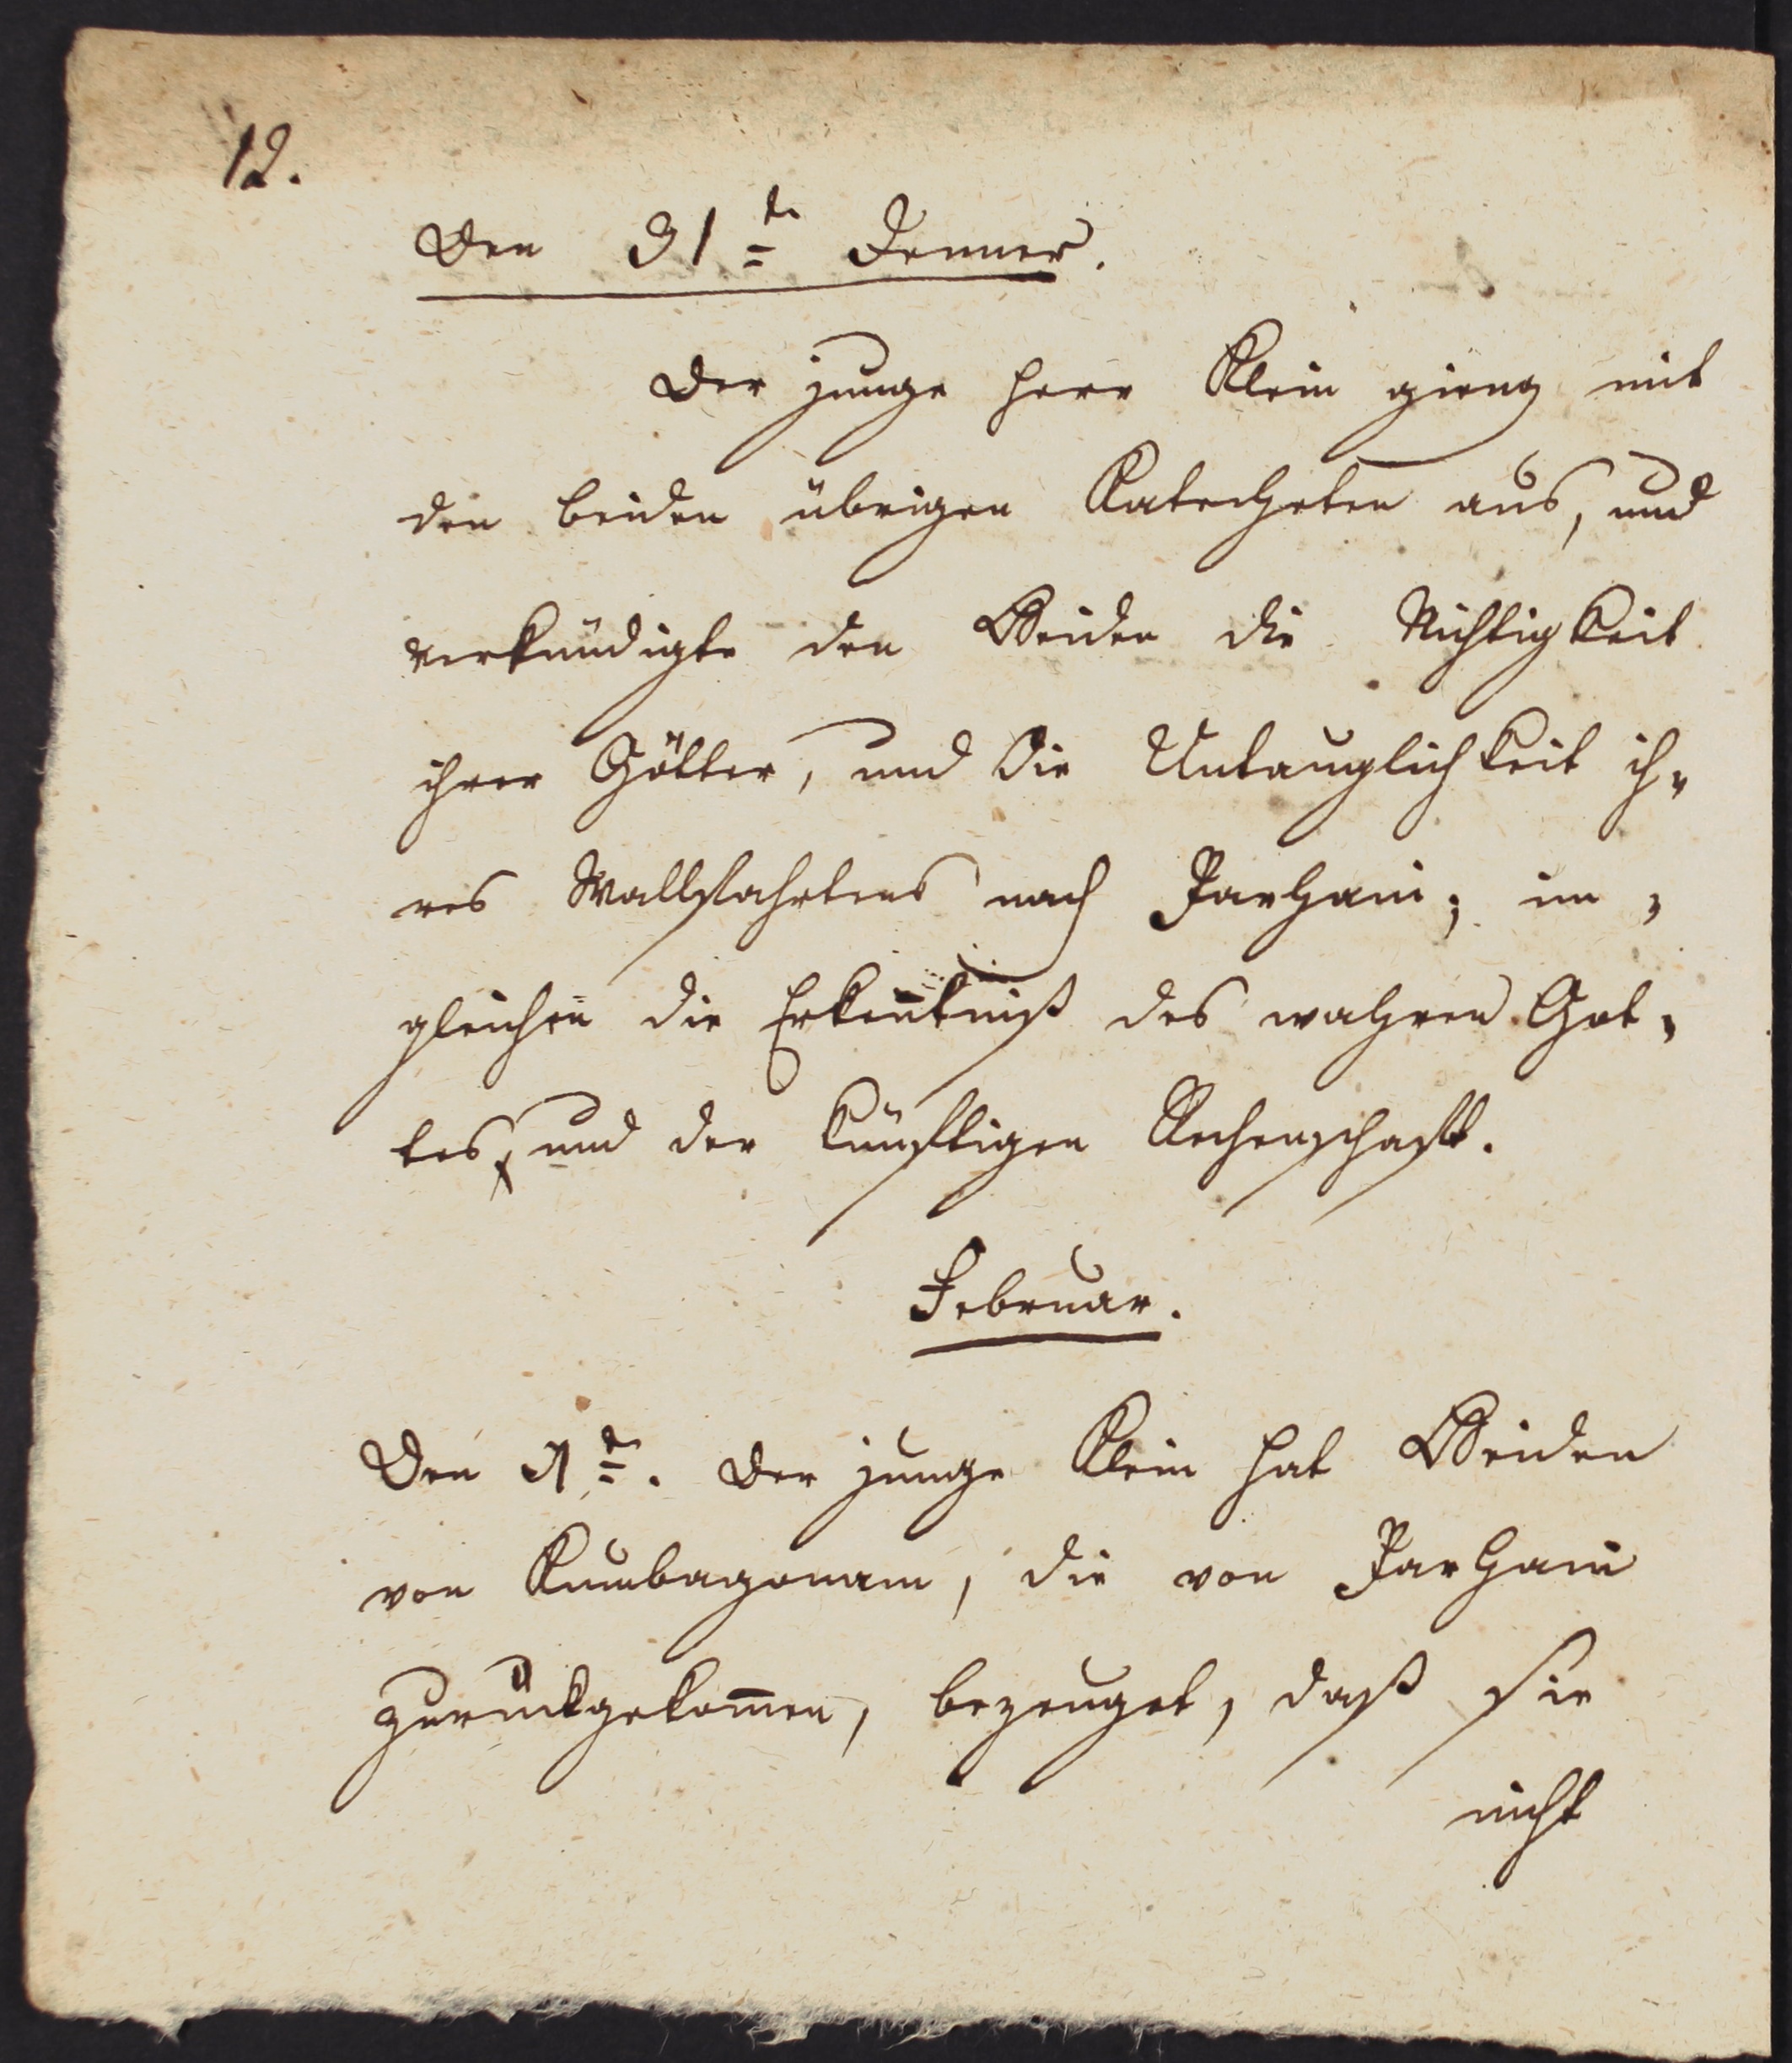 12.
Den 31te Jenner.
Der junge Herr Klein gieng mit
den beiden übrigen Katecheten aus, und
verkündigte den Heiden die Nichtigkeit
ihrer Götter, und die Untauglichkeit ih-
res Wallfahrtens nach Parhani; im-
gleichen die Erkentniß des wahren Got-
tes, und der künftigen Rechenschaft.
Februar.
Den 1te. Der junge Klein hat Heiden
von Kumbagonam, die von Parhani
zurückgekom̄en, bezeuget, daß sie
nicht